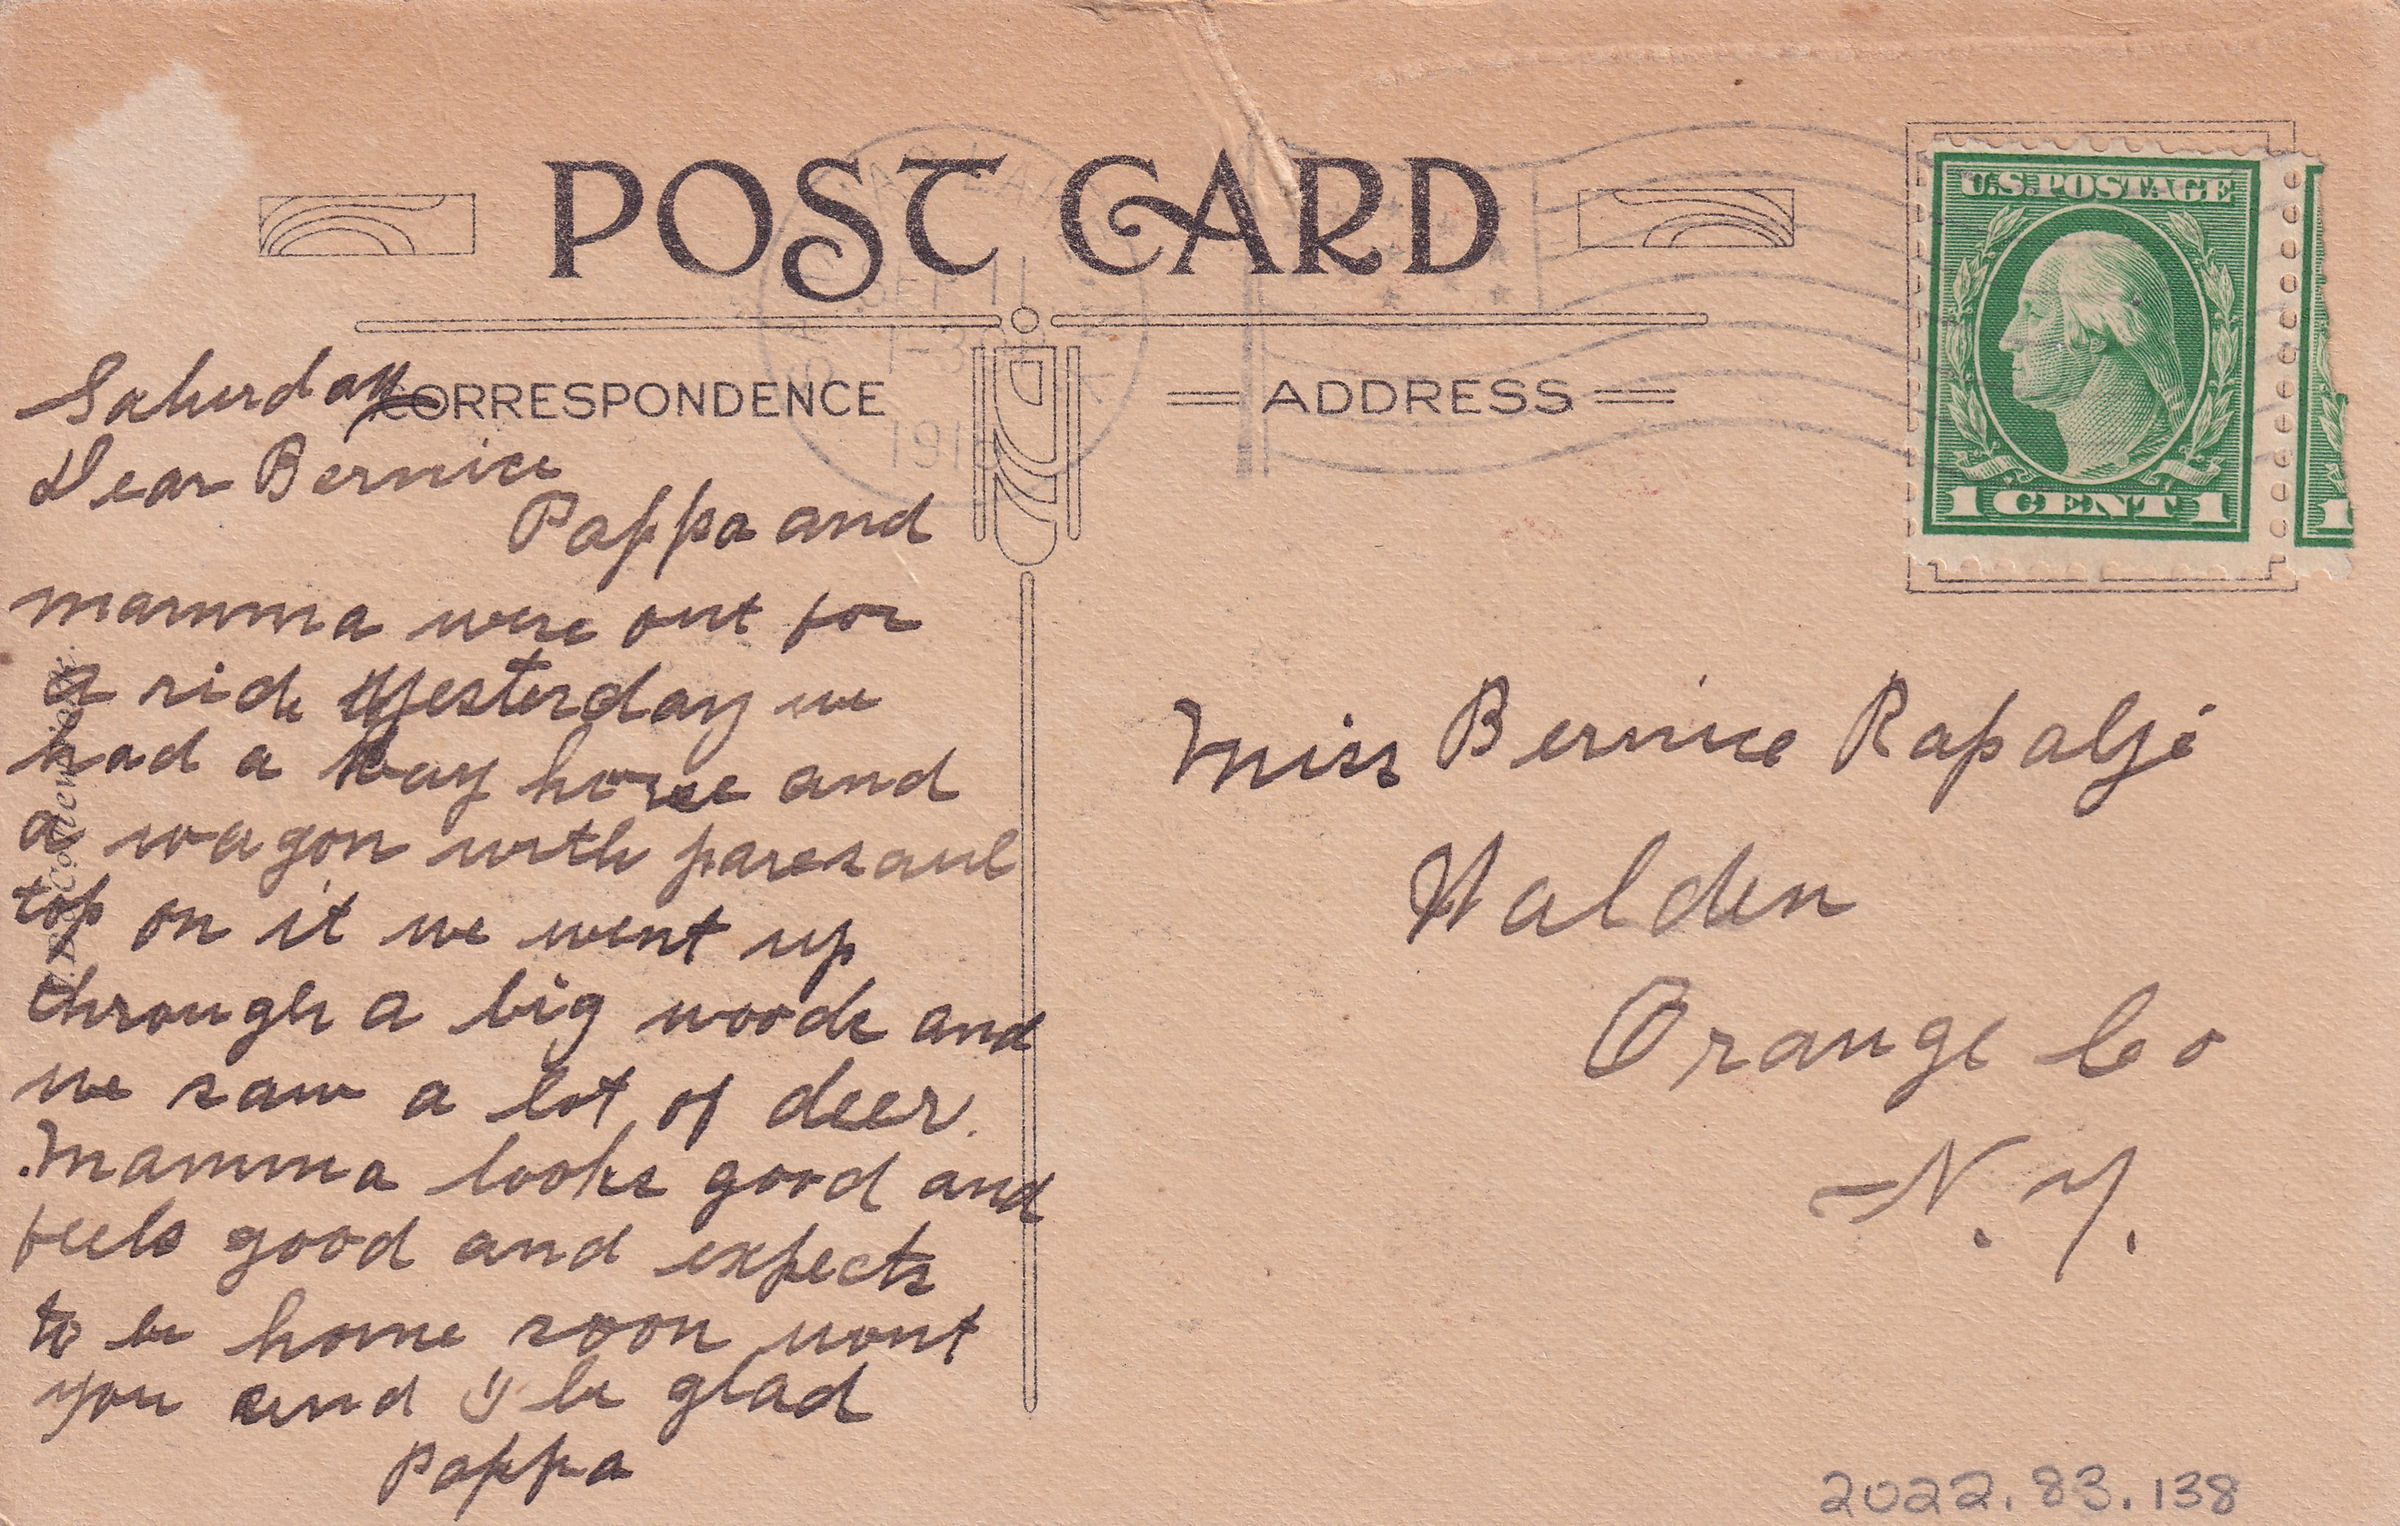 POST CARD
SEP 11
1-30P
191
CORRESPONDENCE
ADDRESS
U.S. POSTAGE
1 CENT 1
1
Saturday
Dear Bernice
Pappa and
mamma were out for
a ride yesterday we
had a bay horse and
a wagon with paresaul
top on it we went up
through a big woods and
we saw a lot of deer.
Mamma looks good and
feels good and expects
to be home soon wont
you and be glad
Pappa
Miss Bernice Rapalje
Walden
Orange Co
N. Y.
2022.83.138